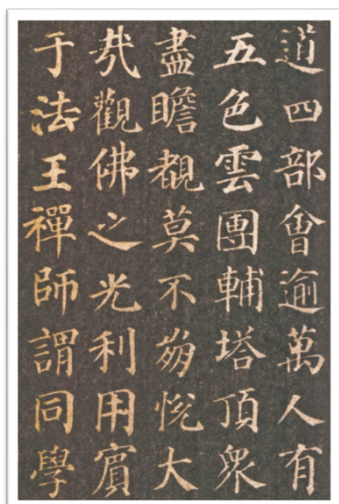 道四部會逾萬人有
五色雲團輔塔頂衆
盡瞻覩莫不崩悅大
哉觀佛之光利用賓
于法王禪師謂同學